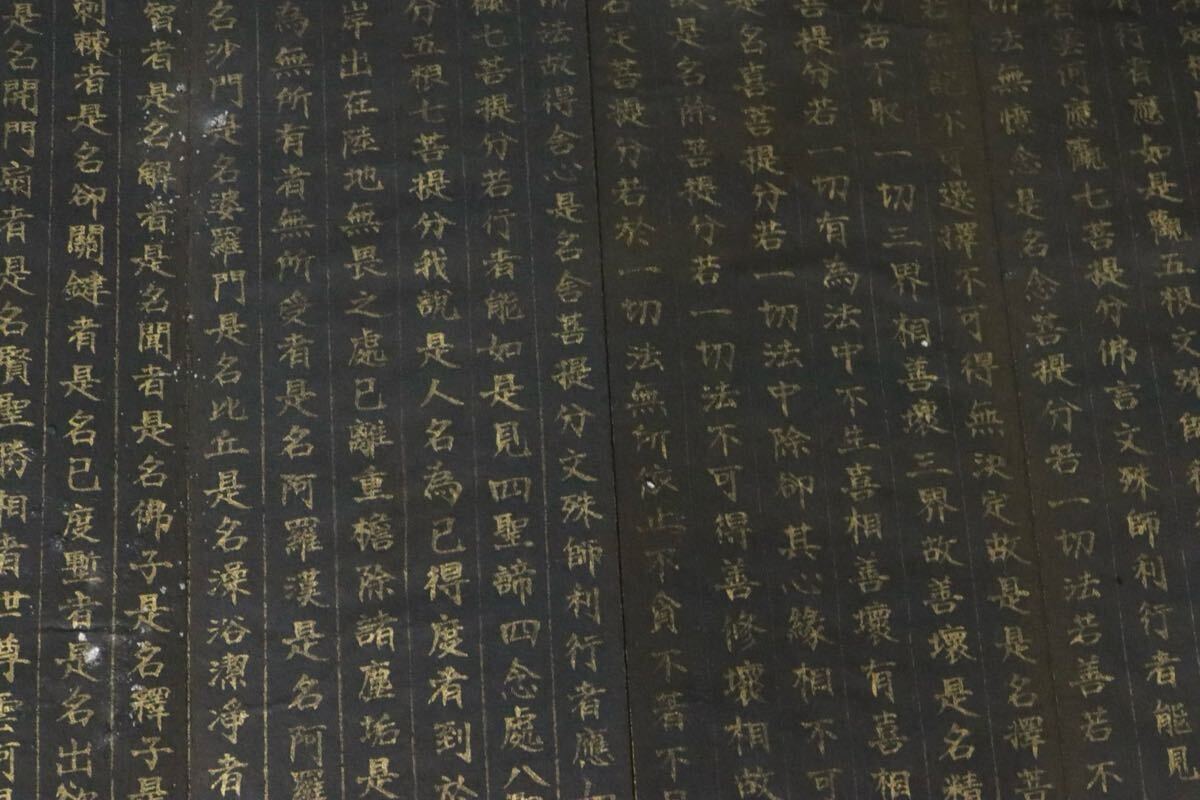 行者應如是觀五根文殊師
行者應如是觀五根文殊師利
若雲何應觀七菩提分佛言文殊師利行者能見
切法無憶念是名念菩提分若一切法若善若不
若無記不可選擇不可得無決定故是名擇菩
分若不取一切三界相善壞三界故善壞是名精
菩提分若一切有為法中不生喜相善壞有喜相
是名喜菩提分若一切法中除卻其心緣相不可
故是名除菩提分若一切法不可得善修壞相故
名定菩提分若於一切法無所依止不貪不著不
法故得舍心是名舍菩提分文殊師利行者應
七菩提分若行者能如是見四聖諦四念處八
分五根七菩提分我說是人名為已得度者到於
岸出在陸地無畏之處已離重擔除諸塵垢是
為無所有者無所受者是名阿羅漢是名阿羅
名沙門是名婆羅門是名比丘是名澡浴潔淨者
智者是名解者是名聞者是名佛子是名釋子是
刺棘者是名卻關鍵者是名已度塹者是名出
是名開門扇者是名賢聖勝相者世尊雲何